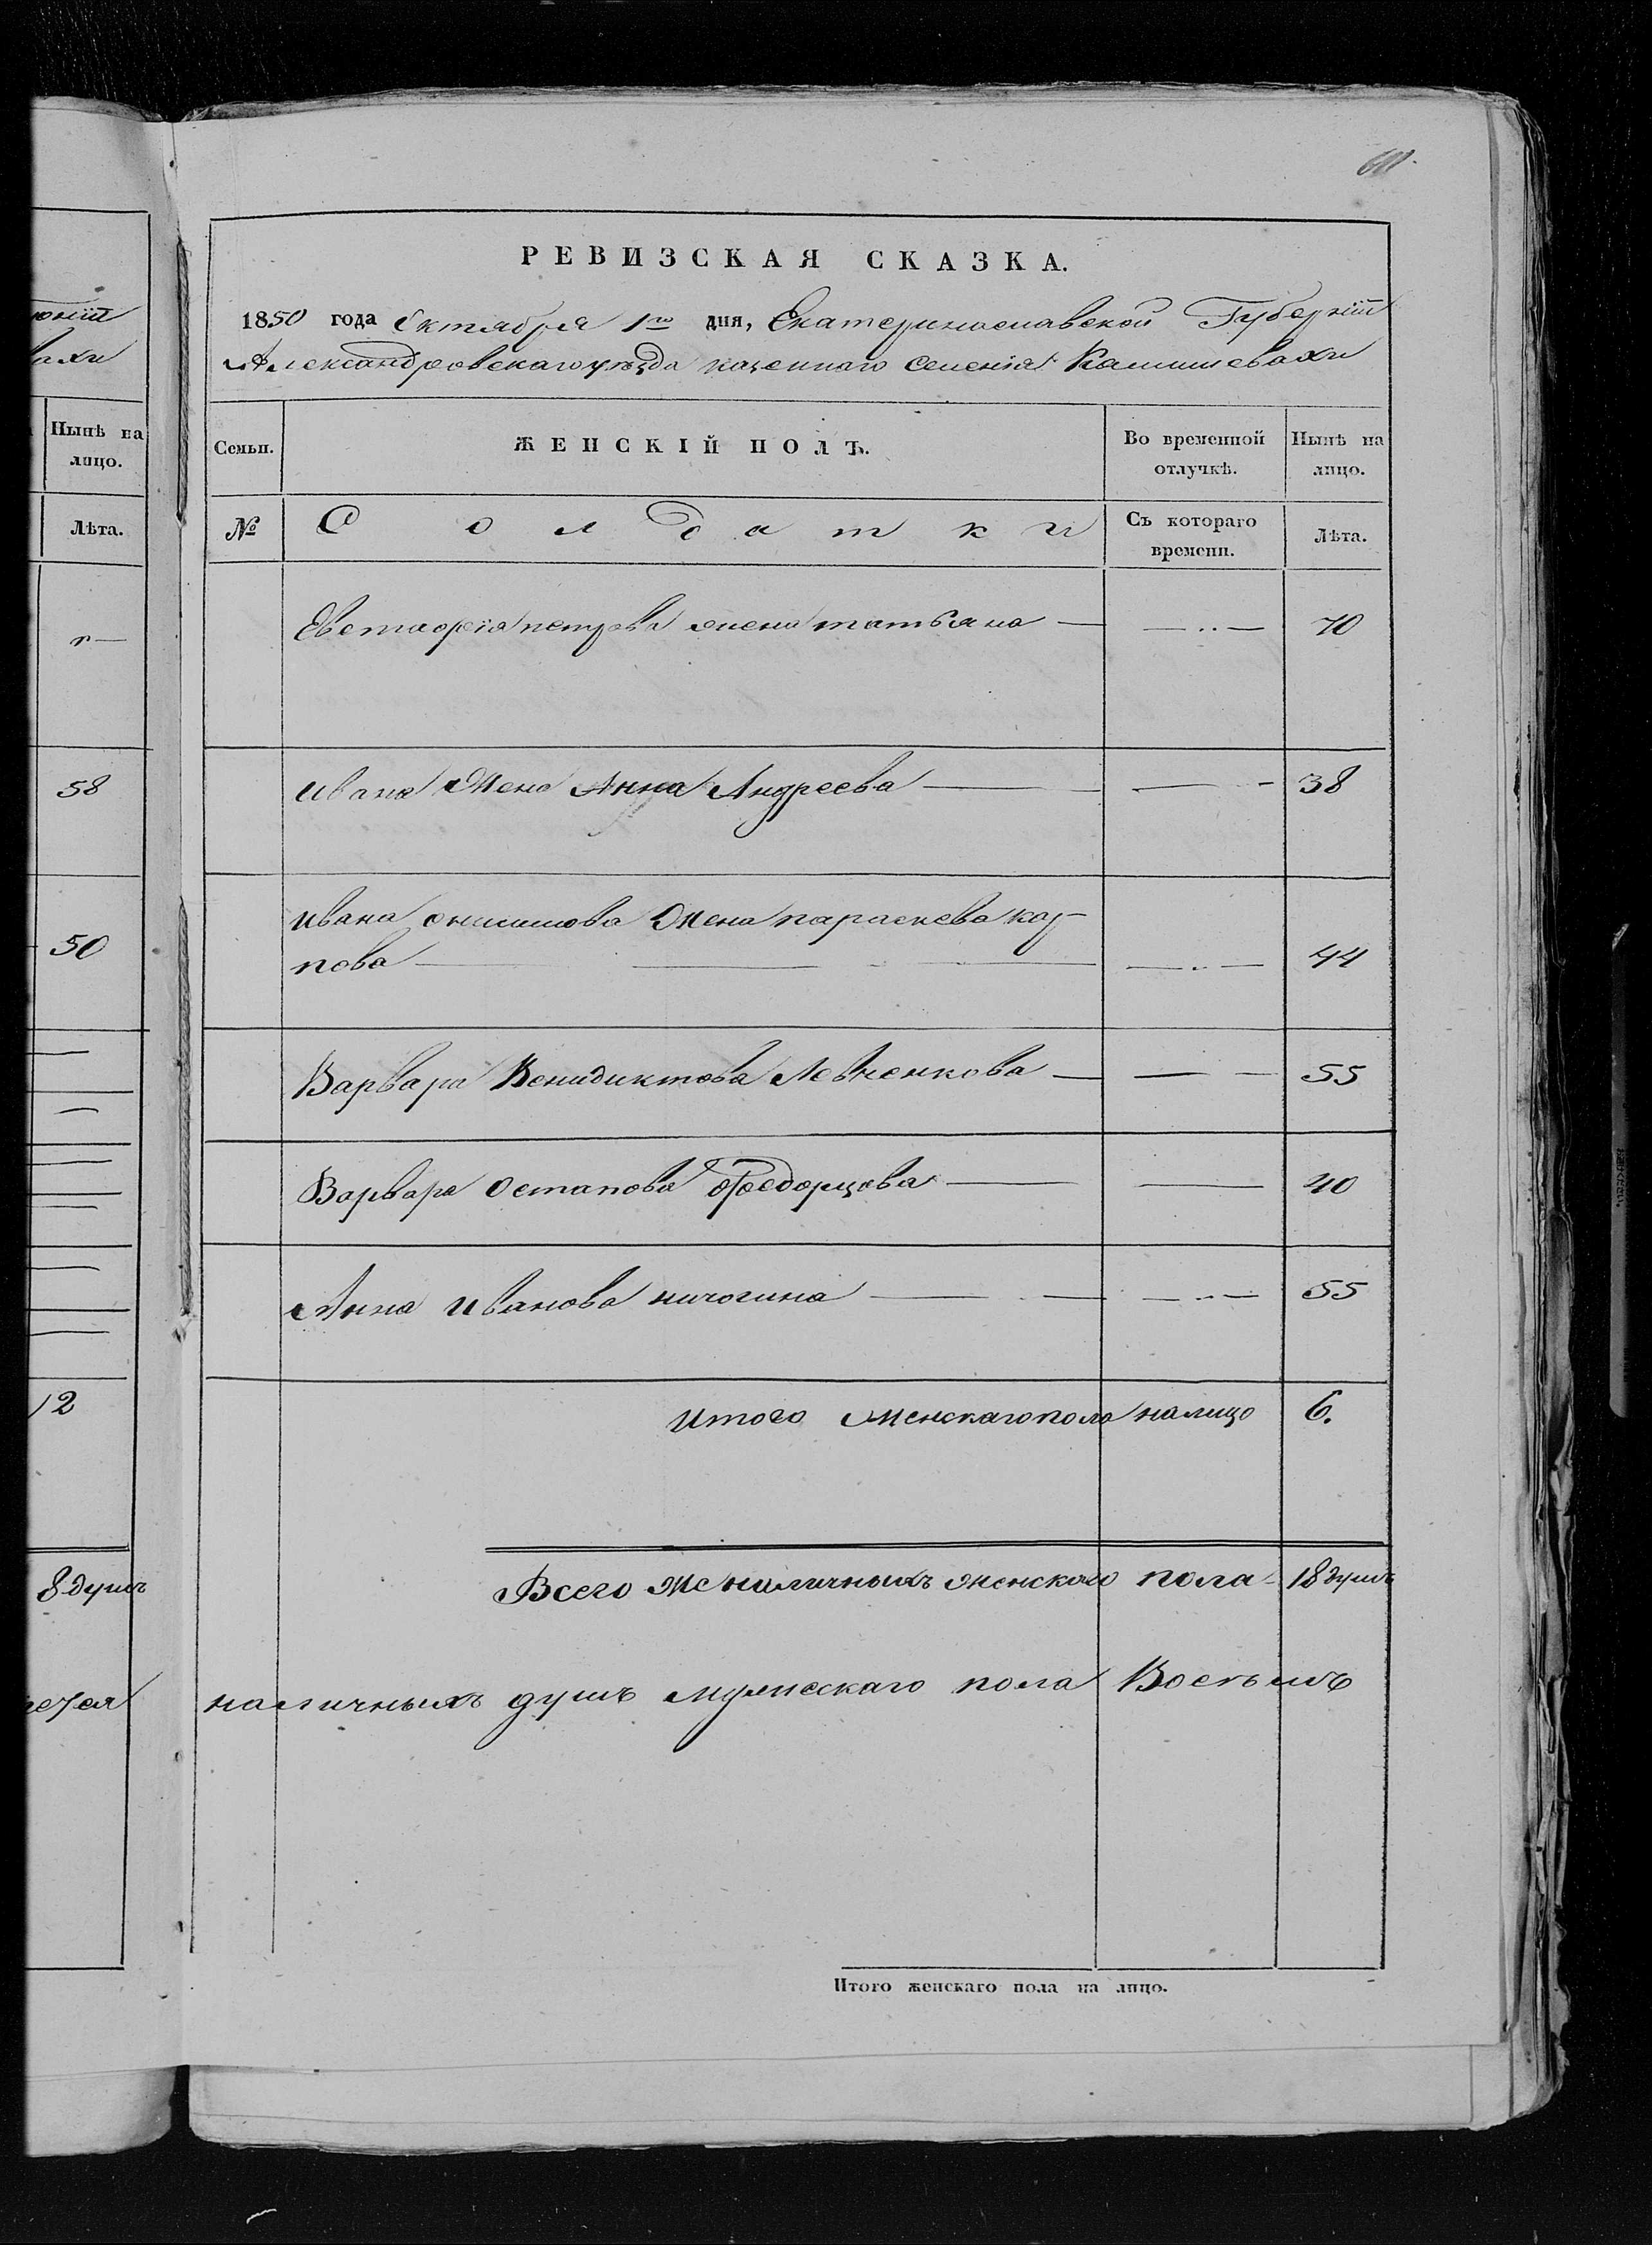 РЕВИЗСКАЯ СКАЗКА.
1850 года Октября 1го дня, Екатеринославской Губернiи
Александровскаго уѣзда казеннаго Селенiя Камышевахи
Нынѣ на лицо.
Семьи.
ЖЕНСКIЙ ПОЛЪ.
Во временной отлучкѣ.
Нынѣ на лицо.
Лѣта.
№
Солдатки
Съ котораго времени.
Лѣта.
Евстафiя петрова жена татьяна 70
58
Ивана Жена Анна Андреева 38
Ивана онисимова Жена параскева кар-
50
пова 44
Варвара Венидиктова Левченкова 55
Варвара Остапова Федорцова 40
Анна Иванова 55
12
Итого Женскаго пола налицо 6.
8 душъ
Всего же наличныхъ женскаго пола 18 душъ
наличныхъ душъ мужескаго пола Восемь
Итого женскаго пола на лицо.